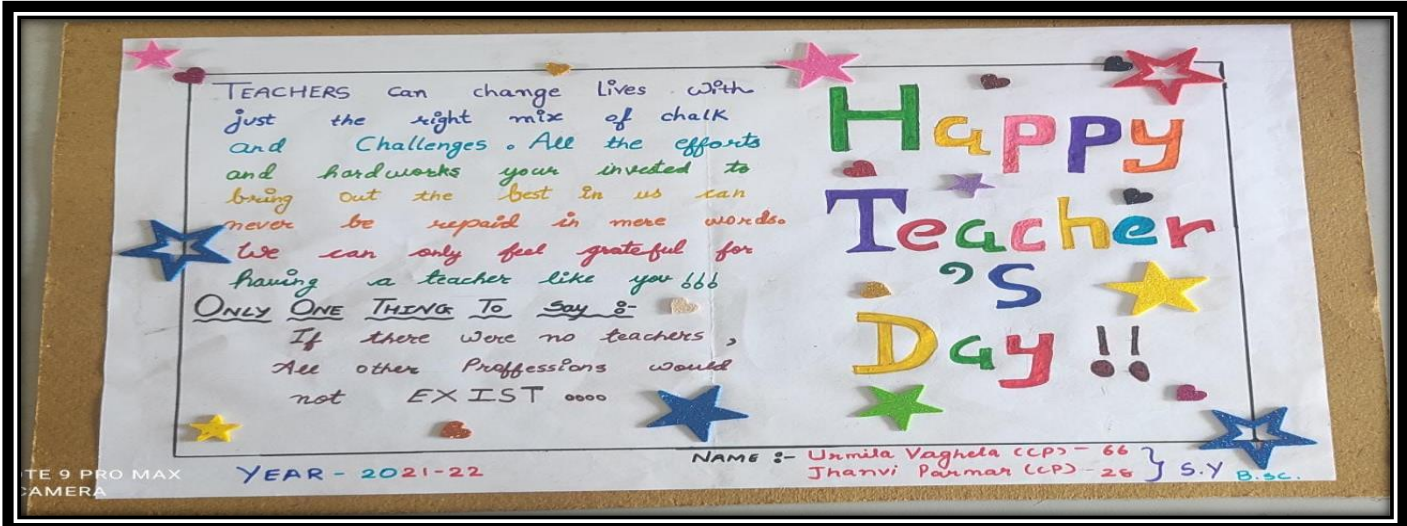 TEACHERS can change lives with
just the right mix of chalk
and Challenges. All the efforts
and hardworks your invested to
bring out the best in us can
never be repaid in mere words.
We can only feel grateful for
having a teacher like you !!!
ONLY ONE THING TO Say :-
If there were no teachers,
All other Proffessions would
not EXIST ....
Happy
Teacher
'S
Day !!
YEAR - 2021-22
NAME :- Urmila Vaghela (CP) - 66
Jhanvi Parmar (CP) - 28 } S.Y B.Sc.
TE 9 PRO MAX
CAMERA